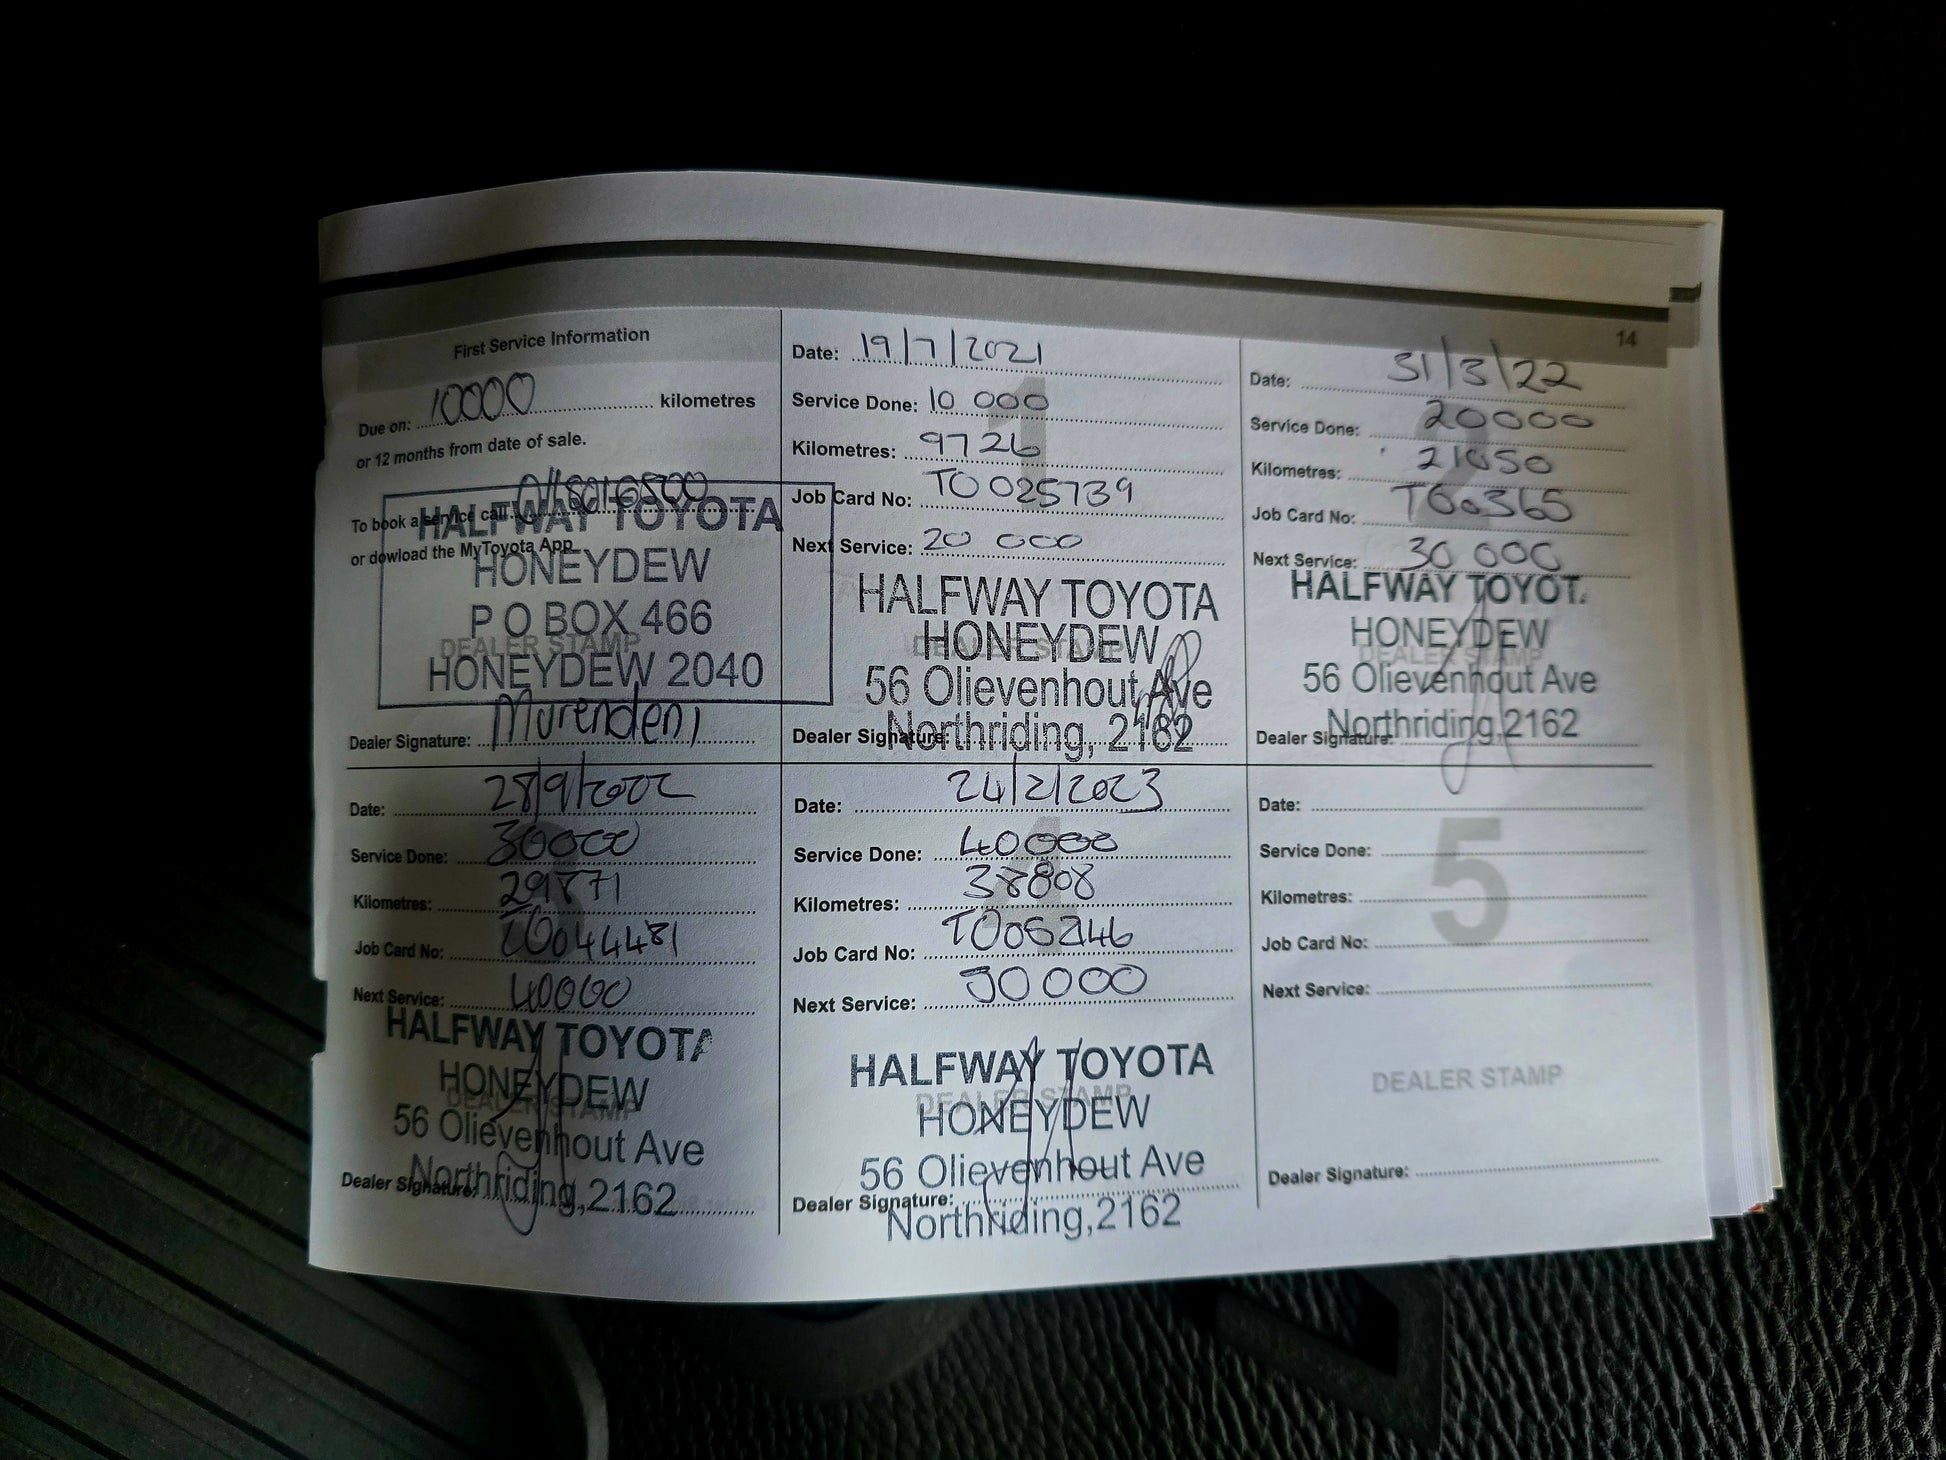 14
First Service Information
Due on: 10000 kilometres
or 12 months from date of sale.
To book a service call
or dowload the MyToyota App
HALFWAY TOYOTA
HONEYDEW
P O BOX 466
DEALER STAMP
HONEYDEW 2040
Dealer Signature: Murendeni
1
Date: 19/7/2021
Service Done: 10 000
Kilometres: 9726
Job Card No: TO025739
Next Service: 20 000
HALFWAY TOYOTA
HONEYDEW
DEALER STAMP
56 Olievenhout Ave
Northriding, 2162
Dealer Signature:
2
Date: 31/3/22
Service Done: 20000
Kilometres: 21050
Job Card No:
Next Service: 30 000
HALFWAY TOYOT
HONEYDEW
DEALER STAMP
56 Olievenhout Ave
Northriding,2162
Dealer Signature:
3
Date: 28/9/2022
Service Done: 30000
Kilometres: 29871
Job Card No: TO044481
Next Service: 40000
HALFWAY TOYOTA
HONEYDEW
DEALER STAMP
56 Olievenhout Ave
Northriding,2162
Dealer Signature:
4
Date: 24/2/2023
Service Done: 40000
Kilometres: 38808
Job Card No:
Next Service: 50000
HALFWAY TOYOTA
DEALER STAMP
HONEYDEW
56 Olievenhout Ave
Dealer Signature:
Northriding,2162
5
Date:
Service Done:
Kilometres:
Job Card No:
Next Service:
DEALER STAMP
Dealer Signature: